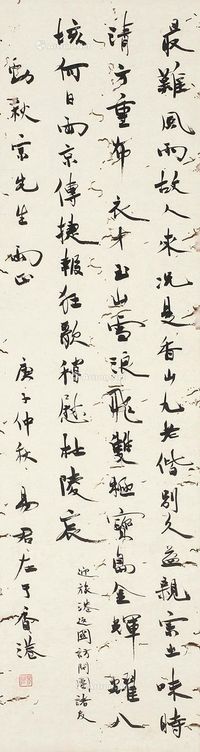 最難風雨故人來況是香山九老偕別久益親宗土味時
清方重布衣才玉山雪浪飛雙軀寶島金輝耀八
垓何日兩京傳捷報狂歌稍慰杜陵哀
迎旅港返國訪問團諸友
勁秋宗先生兩正
庚子仲秋 易君左于香港